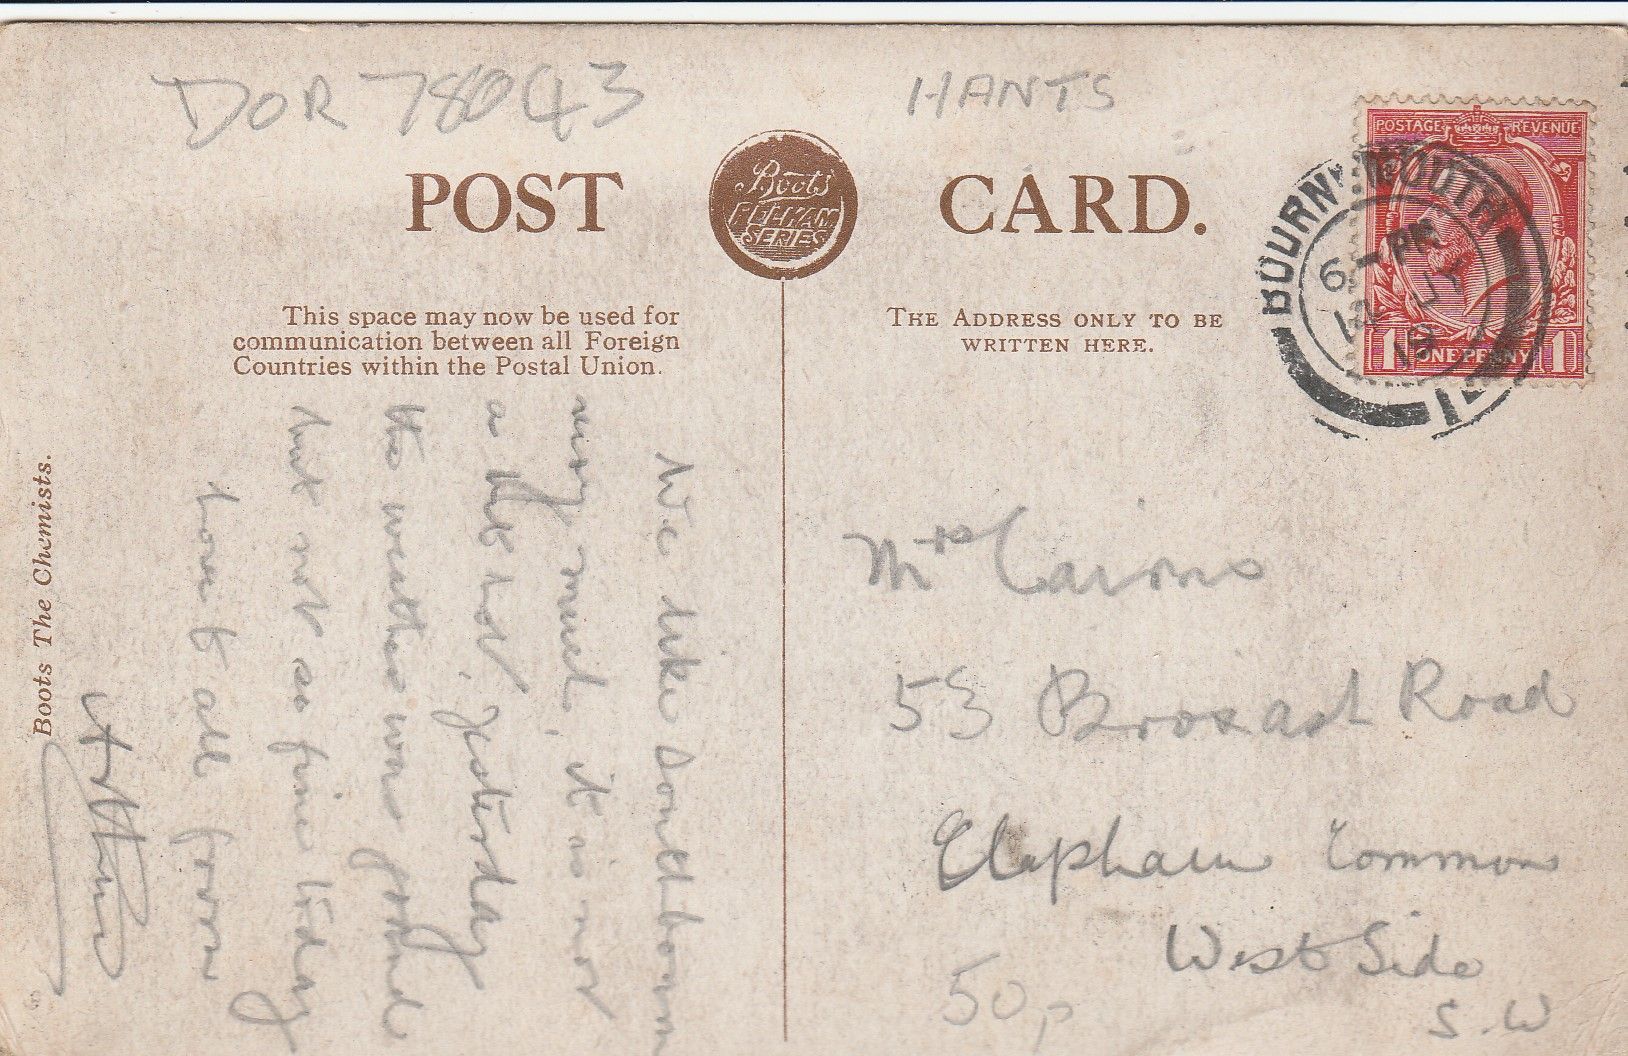 DOR 78043
HANTS
POST CARD.
Boots
PELHAM
SERIES
POSTAGE REVENUE
1 ONE PENNY 1
BOURNEMOUTH
6 - PM
19
This space may now be used for
communication between all Foreign
Countries within the Postal Union.
THE ADDRESS ONLY TO BE
WRITTEN HERE.
Boots The Chemists.
We like Southbourn
very much, it is not
a bit hot. Yesterday
the weather was grand
but not so fine today
love to all from
Mrs Cairns
53 Broxash Road
Clapham Common
West Side
S.W
50p